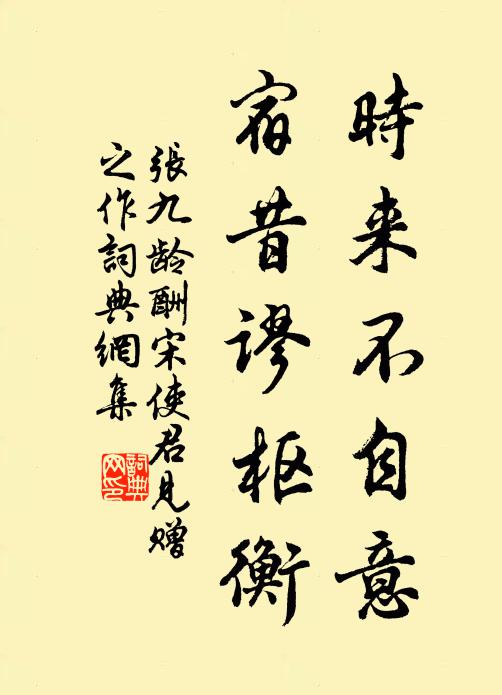 時来不自意
宿昔谬枢衡
張九龄酬宋使君見贈
之作詞典網集
詞典网印